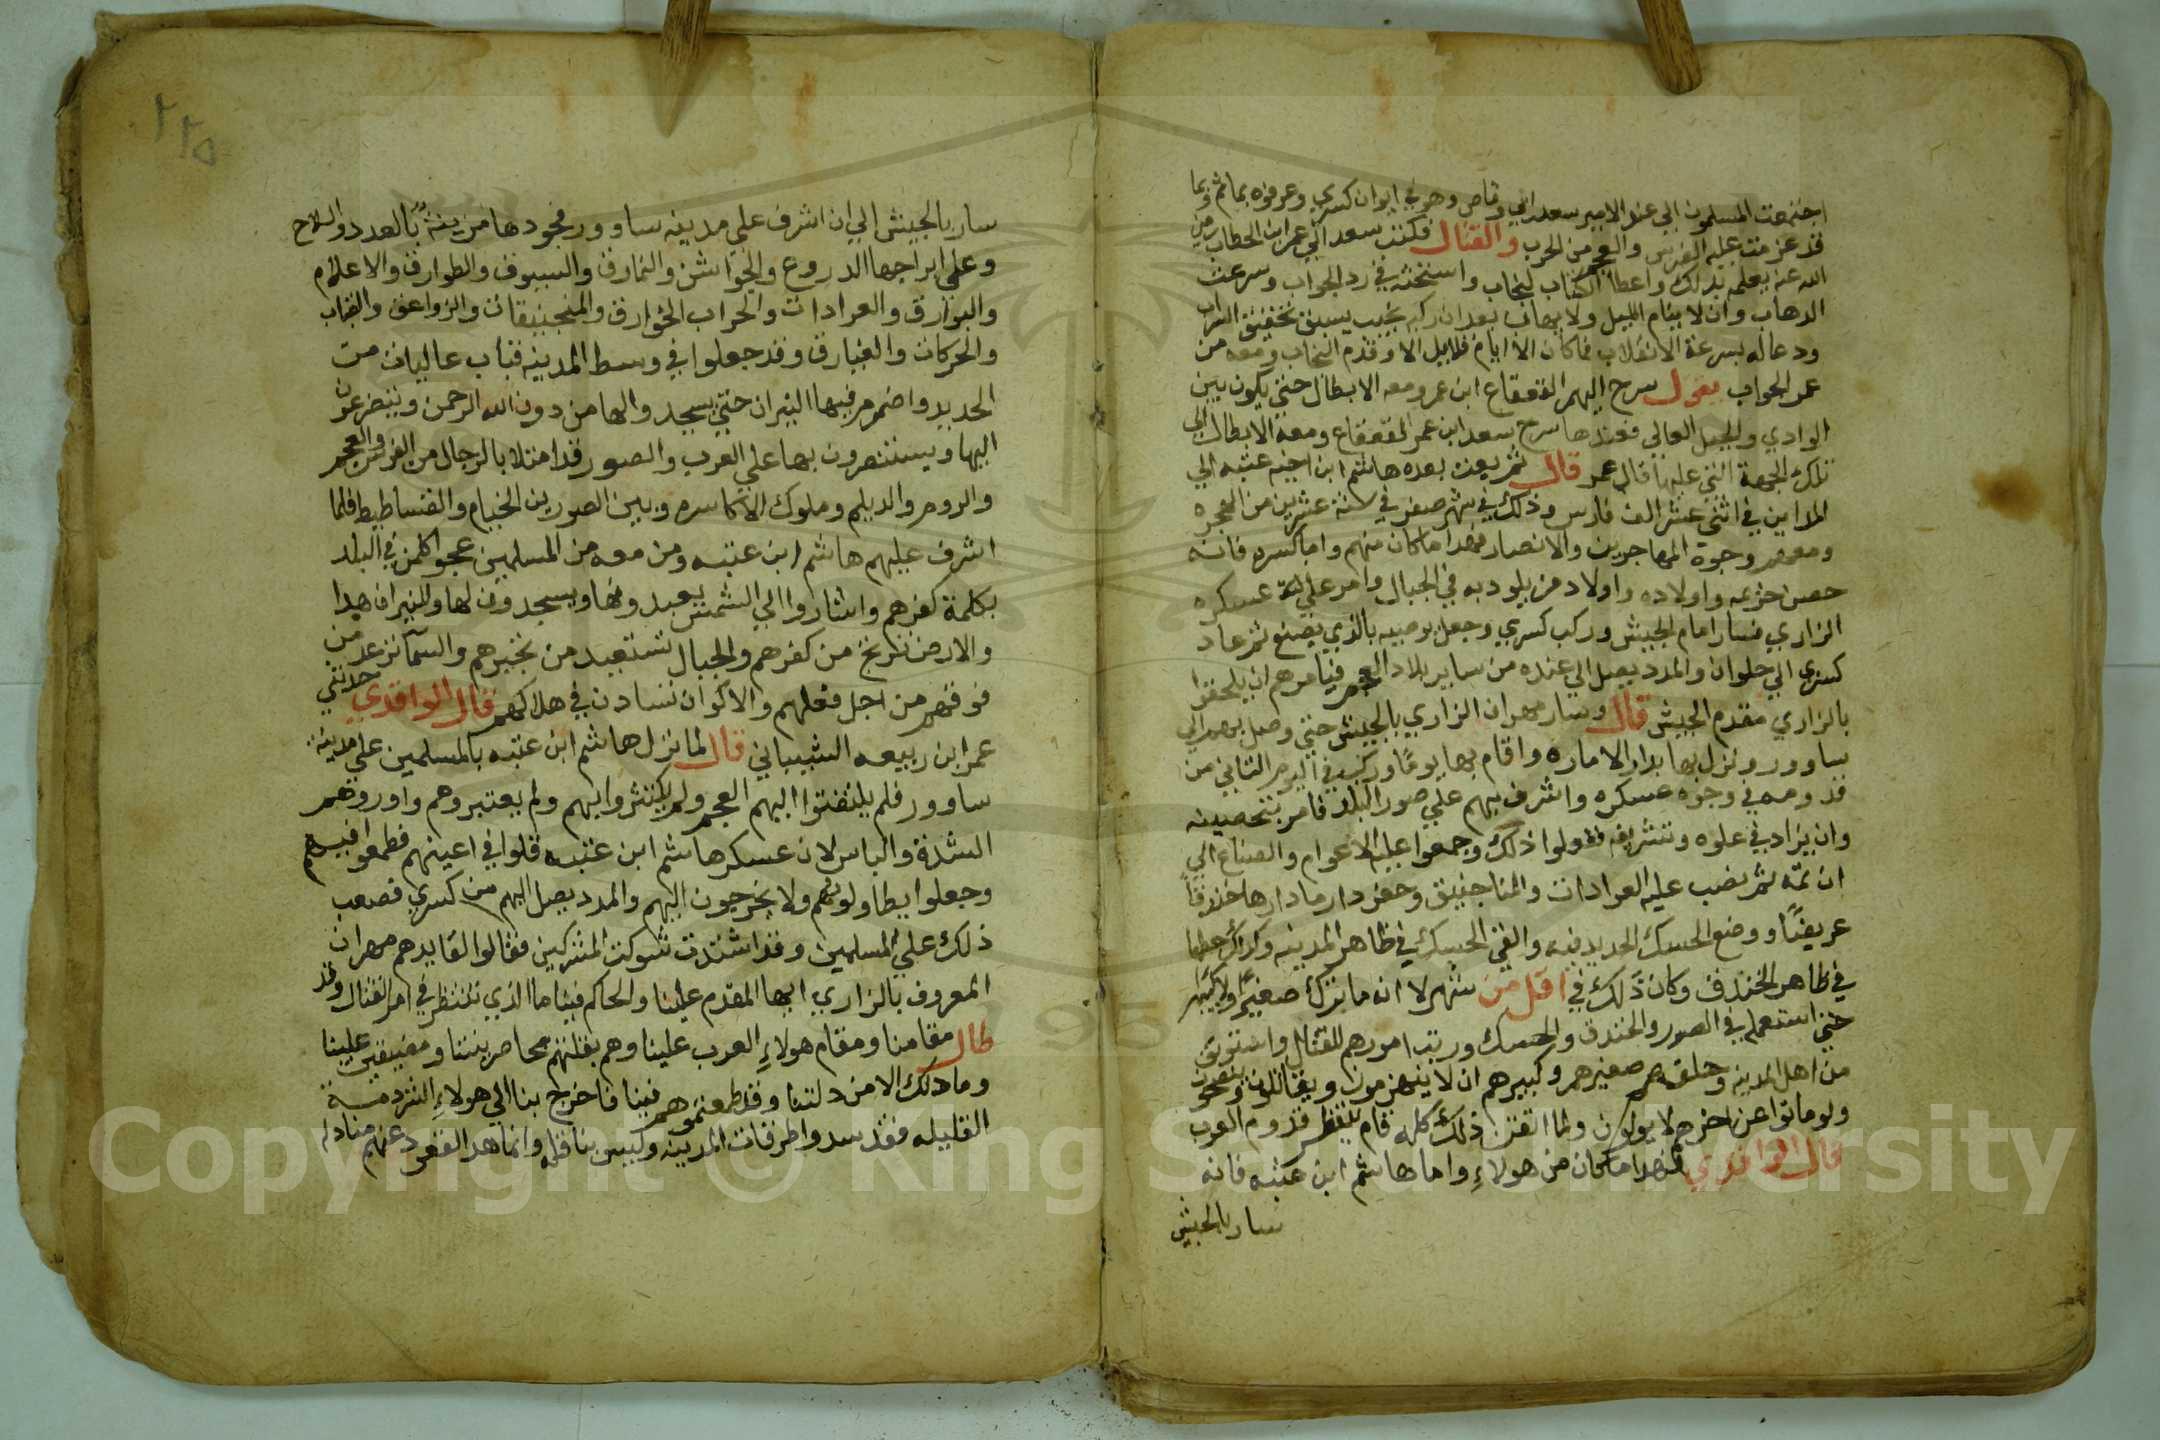 اجتمعت المسلمون الي عند الامير سعد ابي وقاص وهو في ايوان كسري وعرفوه بماثم وبما
قد عزمت عليه الفرس والعجم من الحرب والقتال فكتب سعد الي عمر ابن الخطاب رضي
الله عنه يعلمه بذلك واعطا الكتاب لنجاب واستحثه في رد الجواب وسرعت
الدهاب وان لا ينام الليل ولا يهاب بعد ان ركبه نجيب يسبق
ودعا له بسرعة الانقلاب فما كان الا ايام قلايل الا وقدم النجاب ومعه من
عمر الجواب يقول سرح اليهم القعقاع ابن عمرو معه الابطال حتي يكون بين
الوادي والجبل العالي فعندها سرح سعد ابن عمر القعقاع ومعه الابطال الي
تلك الجهة التي عليها قال عمر قال ثم بعث بعده هاشم ابن اخيه عتبه الي
المداين في اثني عشر الف فارس وذلك في شهر صفر في سنة عشرين من الهجره
ومعهم وجوة المهاجرين والانصار فهدا ماكان منهم واما كسره فانه
حصن حزيمه واولاده واولاد من يلود به في الجبال وامر علي عسكره
الزاري فسار امام الجيش وركب كسري وجعل يوصيه بالذي يصنع ثم عاد
كسري الي حلوان والمدد يصل الي عنده من ساير بلاد العجم فيامرهم ان يلحقوا
بالزاري مقدم الجيش قال وسار مهران الزاري بالجيش حتي وصل بهم الي
ساوور ونزل بها بدار الاماره واقام بها يوما وركب في اليوم التاني من
قدومه في وجوه عسكره واشرف بهم علي صور البلد فامر بتحصينه
وان يزاد في علوه وتشريفه ففعلوا ذلك وجمعوا عليه الاعوام والصناع الي
ان تمه ثم نصب عليه العرادات والمناجنيق وحفر دار مادارها خندقا
عريضا ووضع الحسك الحديد فيه والقي الحسك في ظاهر المدينه وكذلك حطها
في ظاهر الخندق وكان ذلك في اقل من شهر لا انه ما يترك صغيرا ولا كبير
حتي استعمله في الصور والخندق والحسك ورتب امورهم للقتال واستوثق
من اهل المدينه وحلفهم صغيرهم وكبيرهم ان لا ينهزمون ويقاتلون بجهود
ولو ماتوا عن اخرهم لا يولون ولما اتقن ذلك كله قام ينتظر قدوم العرب
قال الواقدي فهدا ماكان من هولاء واما هاشم ابن عتبه فانه
سار بالجيش
٢٢٥
سار بالجيش الي ان اشرف علي مدينه ساوور فجودها مزينة بالعدد والسلاح
وعلي ابراجها الدروع والجواشن والنمارق والسيوف والطوارق والاعلام
والبوارق والعرادات والحراب الخوارق والمنجنيقات والزواعق والقباب
والحركات والغبارق وقد جعلوا في وسط المدينه قباب عاليات من
الحديد واضرم فيها النيران حتي يسجد والها من دون الله الرحمن ويتضرعون
اليها ويستنصرون بها علي العرب والصور قد امتلا بالرجال من الفرس والعجم
والروم والديلم وملوك الاكاسره وبين الصورين الخيام والفساطيط فلما
اشرف عليهم هاشم ابن عتبه ومن معه من المسلمين عجوا كلمن في البلد
بكلمة كفرهم واشاروا الي الشمس يعبدونها ويسجدون لها وللنيران هدا
والارض ترتج من كفرهم والجبال تستعيد من تجبرهم والسما ترعد من
فوقهم من اجل فعلهم والاكوان تنادن في هلاكهم قال الواقدي حدثني
عمر ابن ربيعه الشيباني قال لما نزل هاشم ابن عتبه بالمسلمين علي مدينة
ساوور فلم يلتفتوا اليهم العجم ولم يكترثوا بهم ولم يعتبروهم واوروهم
الشدة والباس لان عسكر هاشم ابن عتبه قلوا في اعينهم فطمعوا فيهم
وجعلوا يطاولونهم ولا يخرجون اليهم والمدد يصل اليهم من كسري فصعب
ذلك علي المسلمين وقد اشتدت شوكت المشركين فقالوا القايدهم مهران
المعروف بالزاري ايها المقدم علينا والحاكم فينا ما الذي تنتظر في امر القتال وقد
طال مقامنا ومقام هولاء العرب علينا وهم بقلتهم محاصريننا ومضيقين علينا
وما دلك الا من دلتنا وقد طمعتموهم فينا فاخرج بنا الي هولاء الشردمة
القليله فقد سدوا طرقات المدينه وليس بنا قله وانما هدا القعود عنهم منا دله
Copyright © King Saud University